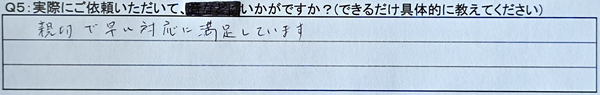 Q5:実際にご依頼いただいて、いかがですか?(できるだけ具体的に教えてください)
親切で早い対応に満足しています